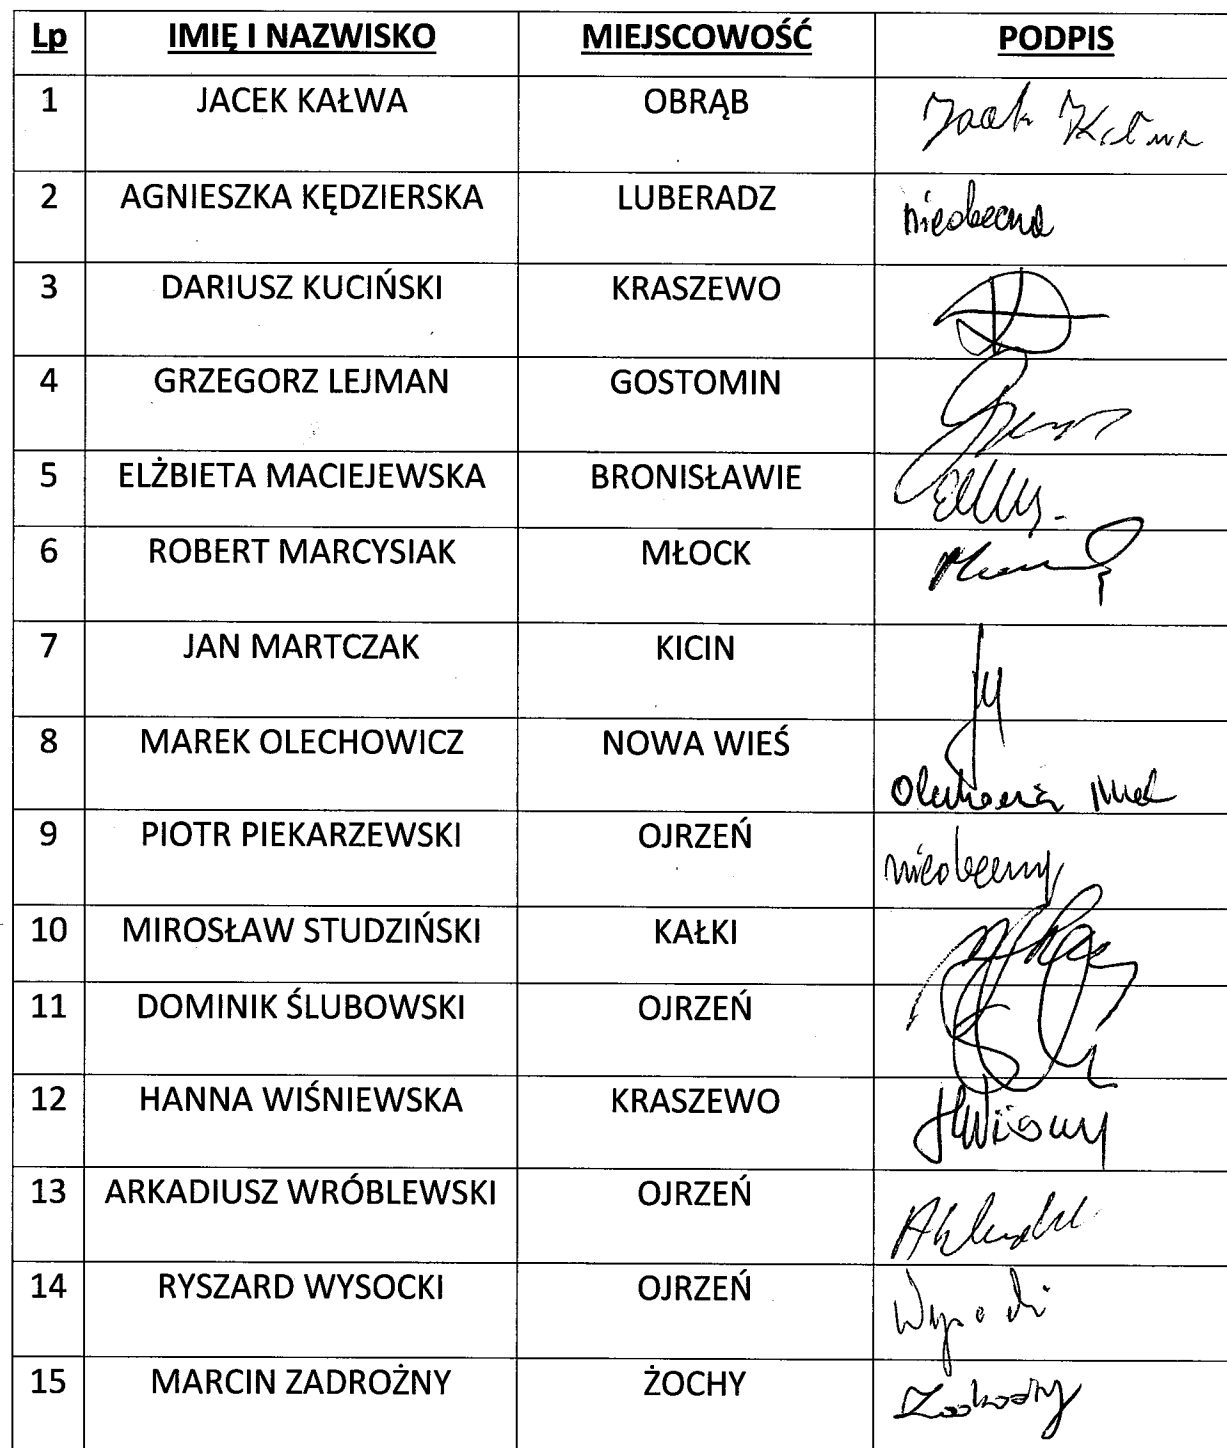 Lp IMIĘ I NAZWISKO MIEJSCOWOŚĆ PODPIS
1 JACEK KAŁWA OBRĄB Jacek Kałwa
2 AGNIESZKA KĘDZIERSKA LUBERADZ nieobecna
3 DARIUSZ KUCIŃSKI KRASZEWO
4 GRZEGORZ LEJMAN GOSTOMIN
5 ELŻBIETA MACIEJEWSKA BRONISŁAWIE
6 ROBERT MARCYSIAK MŁOCK
7 JAN MARTCZAK KICIN
8 MAREK OLECHOWICZ NOWA WIEŚ
9 PIOTR PIEKARZEWSKI OJRZEŃ nieobecny
10 MIROSŁAW STUDZIŃSKI KAŁKI
11 DOMINIK ŚLUBOWSKI OJRZEŃ
12 HANNA WIŚNIEWSKA KRASZEWO
13 ARKADIUSZ WRÓBLEWSKI OJRZEŃ
14 RYSZARD WYSOCKI OJRZEŃ
15 MARCIN ZADROŻNY ŻOCHY